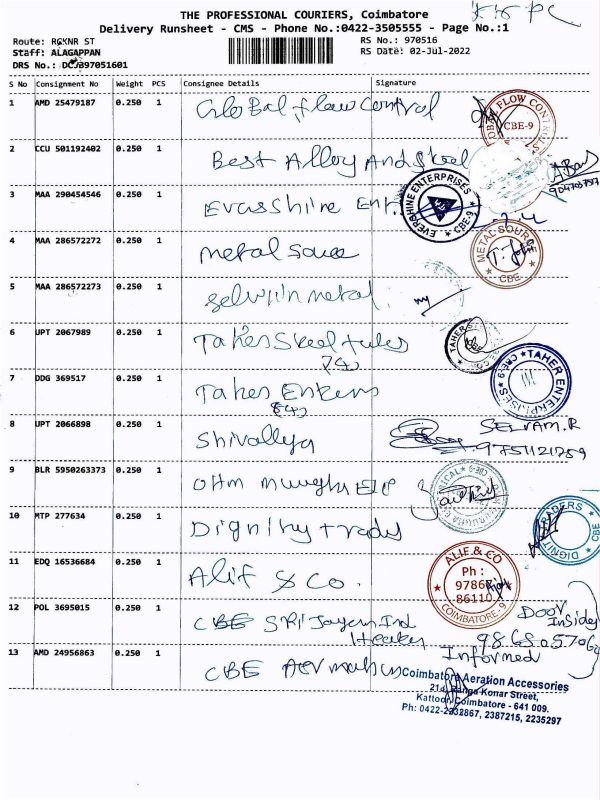 THE PROFESSIONAL COURIERS, Coimbatore
Delivery Runsheet - CMS - Phone No.:0422-3505555 - Page No.:1
Route: RGKNR ST
RS No.: 970516
Staff: ALAGAPPAN
RS Date: 02-Jul-2022
DRS No.: DCJB97051601
S No Consignment No Weight PCS Consignee Details Signature
1 AMD 25479187 0.250 1 Global flow control
GLOBAL FLOW CONTROLS
CBE-9
2 CCU 501192402 0.250 1 Best Alloy And steel
3 MAA 290454546 0.250 1 Evasshine Ent
EVERSHINE ENTERPRISES
CBE-9
4 MAA 286572272 0.250 1 metal souce
METAL SOURCE
CBE
5 MAA 286572273 0.250 1 metal
6 UPT 2067989 0.250 1 Taher Steel tubes
TAHER
7 DDG 369517 0.250 1 Taher
TAHER ENTERPRISES
CBE-9
8 UPT 2066898 0.250 1 Shivallya
SELVAM.R
9751121759
9 BLR 5950263373 0.250 1 Ohm
10 MTP 277634 0.250 1 Dignity trades
DIGNITY TRADERS
CBE
11 EDQ 16536684 0.250 1 Alif & Co.
ALIF & CO
Ph :
COIMBATORE-9
12 POL 3695015 0.250 1 CBE SRi Jayem Ind
Door
Inside
Informed
13 AMD 24956863 0.250 1 CBE
Coimbatore Aeration Accessories
21d, Ranga Konar Street,
Kattoor, Coimbatore - 641 009.
Ph: 0422-2232867, 2387215, 2235297